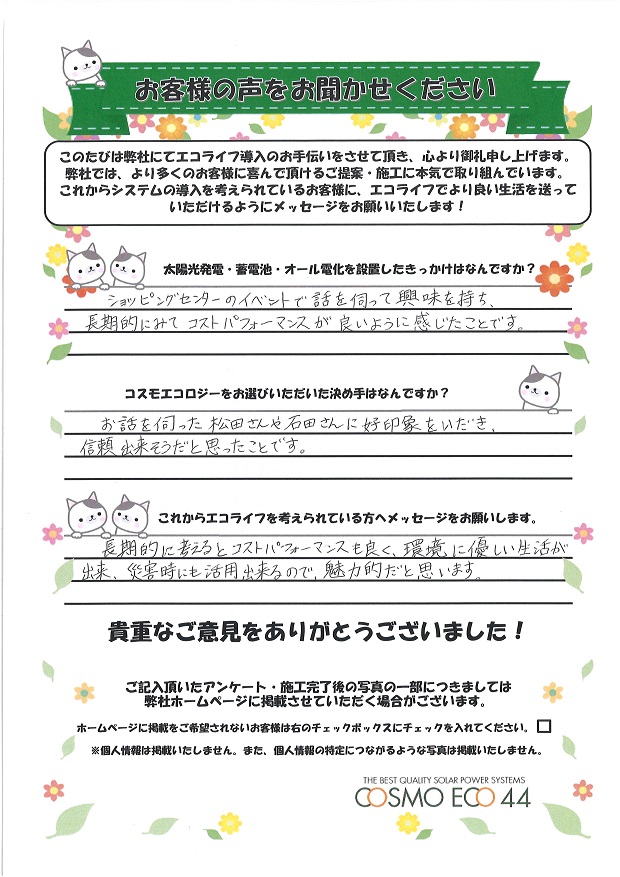 お客様の声をお聞かせください
このたびは弊社にてエコライフ導入のお手伝いをさせて頂き、心より御礼申し上げます。
弊社では、より多くのお客様に喜んで頂けるご提案・施工に本気で取り組んでいます。
これからシステムの導入を考えられているお客様に、エコライフでより良い生活を送って
いただけるようにメッセージをお願いいたします！
太陽光発電・蓄電池・オール電化を設置したきっかけはなんですか？
ショッピングセンターのイベントで話を伺って興味を持ち、
長期的にみてコストパフォーマンスが良いように感じたことです。
コスモエコロジーをお選びいただいた決め手はなんですか？
お話を伺った松田さんや石田さんに好印象をいだき、
信頼出来そうだと思ったことです。
これからエコライフを考えられている方へメッセージをお願いします。
長期的に考えるとコストパフォーマンスも良く、環境に優しい生活が
出来、災害時にも活用出来るので、魅力的だと思います。
貴重なご意見をありがとうございました！
ご記入頂いたアンケート・施工完了後の写真の一部につきましては
弊社ホームページに掲載させていただく場合がございます。
ホームページに掲載をご希望されないお客様は右のチェックボックスにチェックを入れてください。
※個人情報は掲載いたしません。また、個人情報の特定につながるような写真は掲載いたしません。
THE BEST QUALITY SOLAR POWER SYSTEMS
COSMO ECO 44